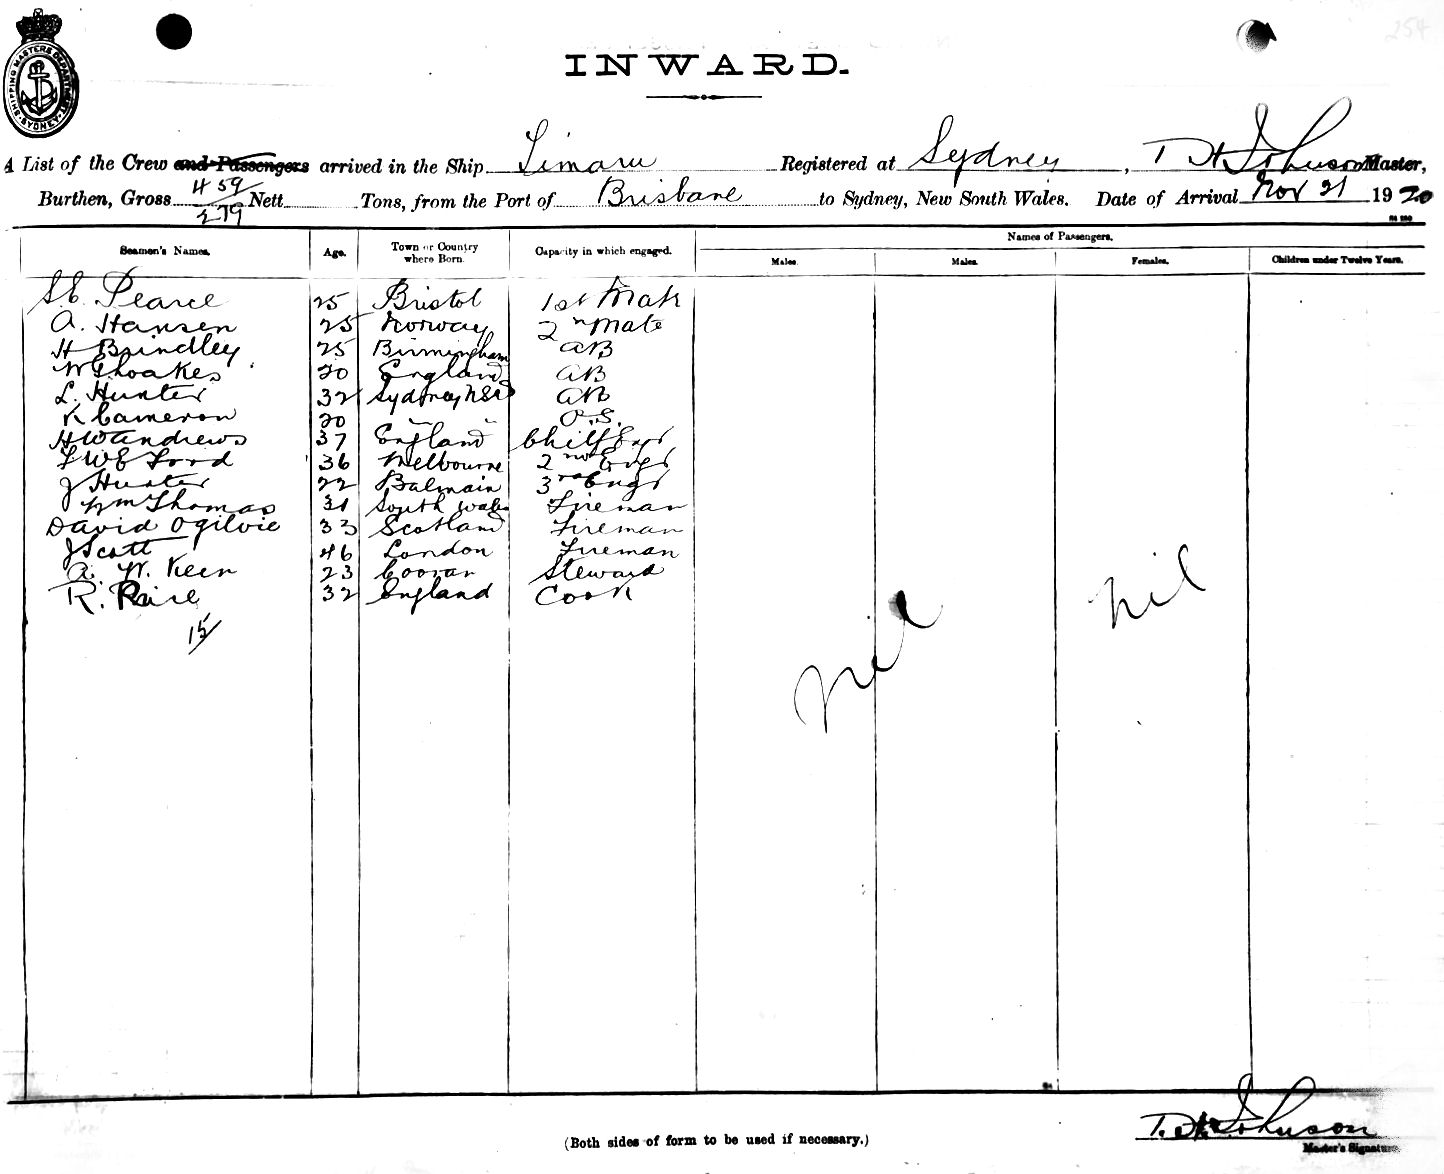 254
SHIPPING MASTERS DEPARTMENT SYDNEY
INWARD.
A List of the Crew and Passengers arrived in the Ship Timaru Registered at Sydney, T H Johnson Master,
Burthen, Gross 459/279 Nett Tons, from the Port of Brisbane to Sydney, New South Wales. Date of Arrival Nov 21 1920
Names of Passengers.
Seamen's Names. Age. Town or Country where Born. Capacity in which engaged. Males. Males. Females. Children under Twelve Years.
S.E. Pearce 25 Bristol 1st Mate
A. Hansen 25 Norway 2nd Mate
H Brindley 25 Birmingham AB
20 England AB
L. Hunter 32 Sydney NSW AB
K Cameron 20 " " O.S.
H W Andrews 37 England Chief Engr
F W E Ford 36 Melbourne 2nd Engr
J Hunter 22 Balmain 3rd Engr
Wm Thomas 31 South Wales Fireman
David Ogilvie 33 Scotland Fireman
J Scott 46 London Fireman
A. W. Keen 23 Steward
R. 32 England Cook
15
nil
nil
T. H. Johnson
Master's Signature
(Both sides of form to be used if necessary.)